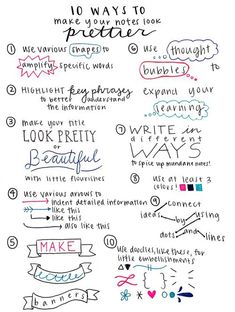 10 WAYS TO
make your notes look
prettier
① use various shapes to
amplify specific words
② HIGHLIGHT key phrases
to better understand
the information
③ make your title
LOOK PRETTY
or
Beautiful
with little flourishes
④ use various arrows to
indent detailed information
like this
like this
also like this
⑤ MAKE
little
banners
⑥ use thought
bubbles to
expand your
learning
⑦ WRITE in
different
WAYS
to spice up mundane notes!
⑧ use at least 3
colors!
⑨ connect
ideas by using
dots and lines
⑩ Use doodles, like these, for
little embellishments